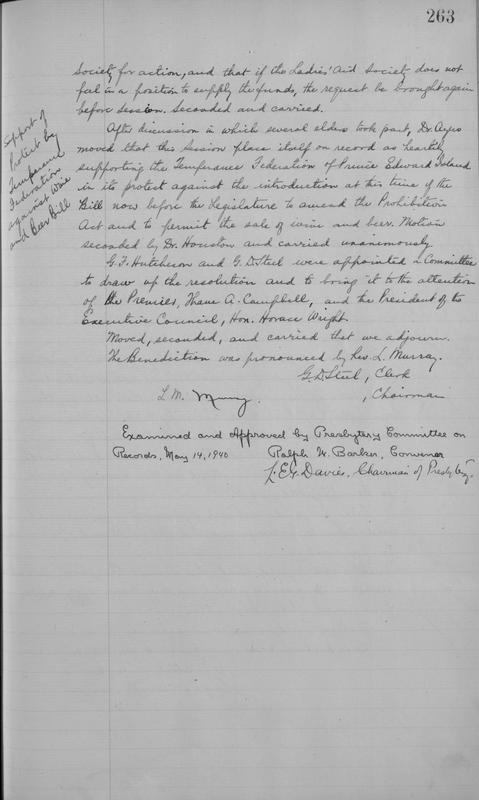 263
Society for action, and that if the Ladies' Aid Society does not
feel in a position to supply the funds, the request be brought again
before Session. Seconded and carried.
Support of
Protest by
Temperance
Federation
against Wine
and Beer Bill
After discussion in which several elders took part, Dr. Ayers
moved that this Session place itself on record as heartily
supporting the Temperance Federation of Prince Edward Island
in its protest against the introduction at this time of the
Bill now before the Legislature to amend the Prohibition
Act and to permit the sale of wine and beer. Motion
seconded by Dr. Houston and carried unanimously.
G. F. Hutcheson and G. D. Steel were appointed a Committee
to draw up the resolution and to bring it to the attention
of the Premier, Thane A. Campbell, and the President of the
Executive Council, Hon. Horace Wright.
Moved, seconded, and carried that we adjourn.
The Benediction was pronounced by Rev. L. Murray.
G. D. Steel, Clerk
L. M. Murray. , Chairman
Examined and Approved by Presbytery Committee on
Records, May 14, 1940 Ralph W. Barker, Convener
L. E. G. Davies, Chairman of Presbytery.